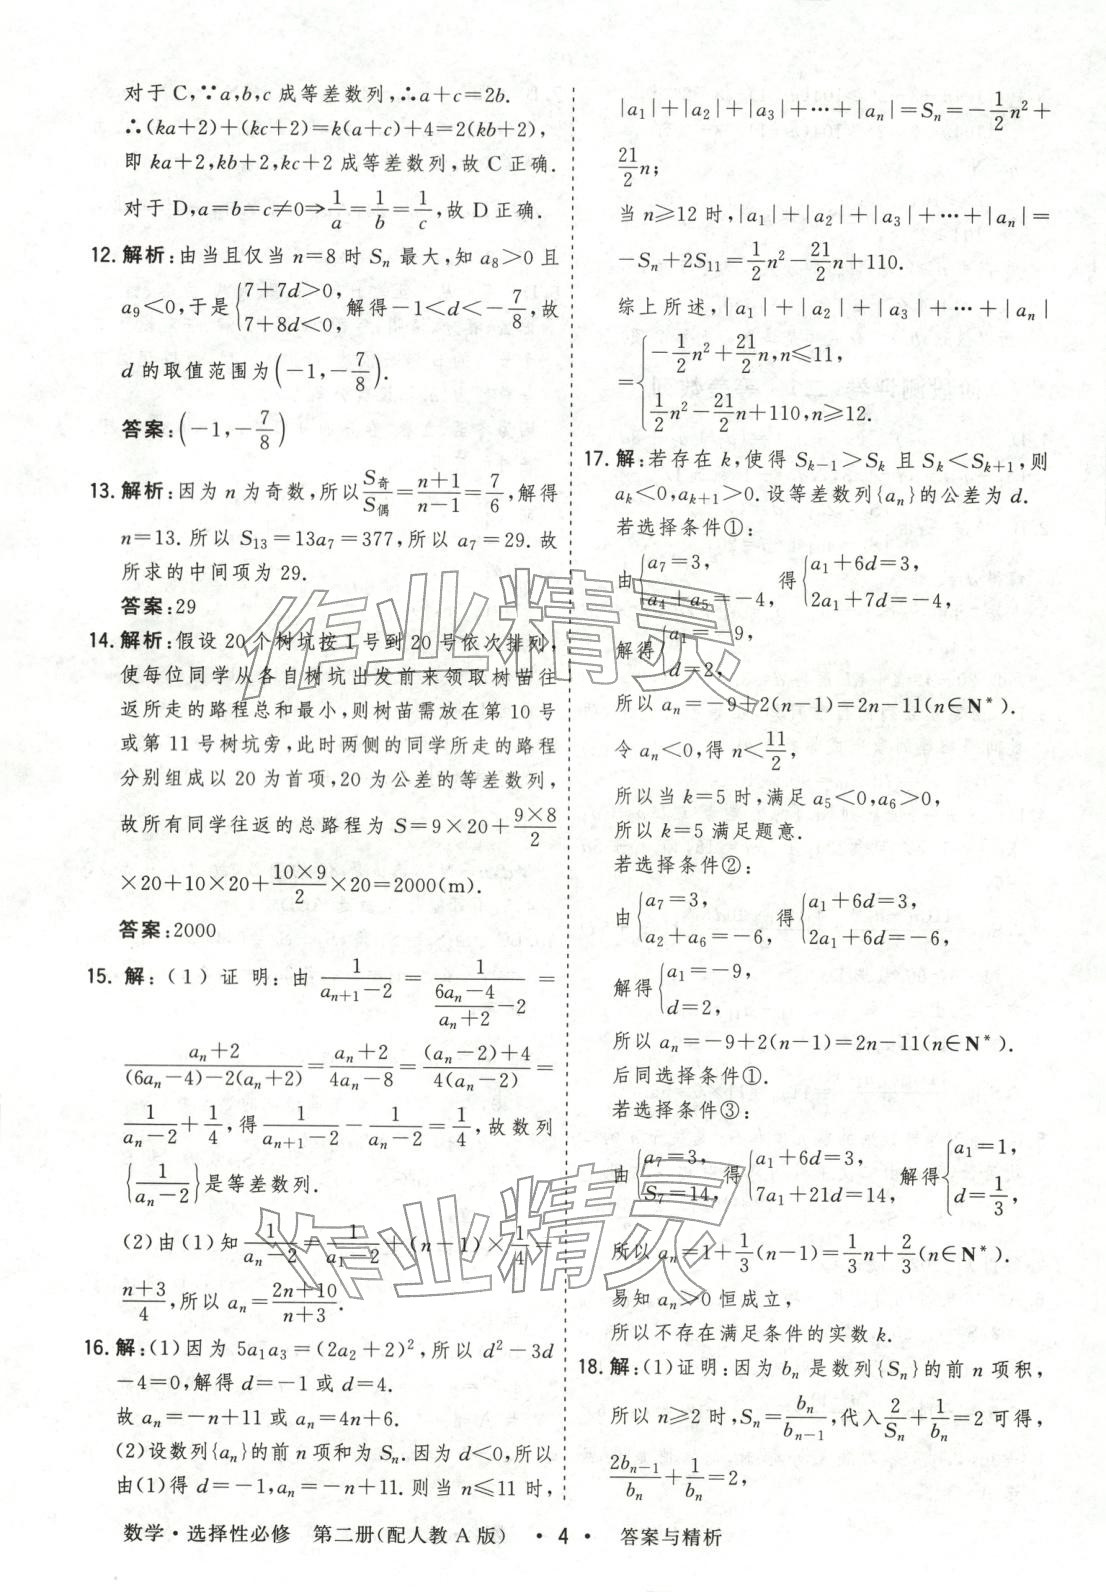 对于C,∵a,b,c成等差数列,∴a+c=2b.
∴(ka+2)+(kc+2)=k(a+c)+4=2(kb+2),
即ka+2,kb+2,kc+2成等差数列,故C正确.
对于D,a=b=c≠0⇒1/a=1/b=1/c,故D正确.
12.解析:由当且仅当n=8时Sₙ最大,知a₈>0且
a₉<0,于是{7+7d>0, 7+8d<0, 解得-1<d<-7/8,故
d的取值范围为(-1,-7/8).
答案:(-1,-7/8)
13.解析:因为n为奇数,所以S奇/S偶=(n+1)/(n-1)=7/6,解得
n=13.所以S₁₃=13a₇=377,所以a₇=29.故
所求的中间项为29.
答案:29
14.解析:假设20个树坑按1号到20号依次排列,
使每位同学从各自树坑出发前来领取树苗往
返所走的路程总和最小,则树苗需放在第10号
或第11号树坑旁,此时两侧的同学所走的路程
分别组成以20为首项,20为公差的等差数列,
故所有同学往返的总路程为S=9×20+(9×8)/2
×20+10×20+(10×9)/2×20=2000(m).
答案:2000
15.解:(1)证明:由1/(aₙ₊₁-2)=1/((6aₙ-4)/(aₙ+2)-2)=
(aₙ+2)/((6aₙ-4)-2(aₙ+2))=(aₙ+2)/(4aₙ-8)=((aₙ-2)+4)/(4(aₙ-2))=
1/(aₙ-2)+1/4,得1/(aₙ₊₁-2)-1/(aₙ-2)=1/4,故数列
{1/(aₙ-2)}是等差数列.
(2)由(1)知1/(aₙ-2)=1/(a₁-2)+(n-1)×1/4=
(n+3)/4,所以aₙ=(2n+10)/(n+3).
16.解:(1)因为5a₁a₃=(2a₂+2)²,所以d²-3d
-4=0,解得d=-1或d=4.
故aₙ=-n+11或aₙ=4n+6.
(2)设数列{aₙ}的前n项和为Sₙ.因为d<0,所以
由(1)得d=-1,aₙ=-n+11.则当n≤11时,
|a₁|+|a₂|+|a₃|+⋯+|aₙ|=Sₙ=-1/2n²+
21/2n;
当n≥12时,|a₁|+|a₂|+|a₃|+⋯+|aₙ|=
-Sₙ+2S₁₁=1/2n²-21/2n+110.
综上所述,|a₁|+|a₂|+|a₃|+⋯+|aₙ|
={-1/2n²+21/2n,n≤11,
1/2n²-21/2n+110,n≥12.
17.解:若存在k,使得Sₖ₋₁>Sₖ且Sₖ<Sₖ₊₁,则
aₖ<0,aₖ₊₁>0.设等差数列{aₙ}的公差为d.
若选择条件①:
由{a₇=3, a₄+a₅=-4, 得{a₁+6d=3, 2a₁+7d=-4,
解得{a₁=-9, d=2,
所以aₙ=-9+2(n-1)=2n-11(n∈N*).
令aₙ<0,得n<11/2,
所以当k=5时,满足a₅<0,a₆>0,
所以k=5满足题意.
若选择条件②:
由{a₇=3, a₂+a₆=-6, 得{a₁+6d=3, 2a₁+6d=-6,
解得{a₁=-9, d=2,
所以aₙ=-9+2(n-1)=2n-11(n∈N*).
后同选择条件①.
若选择条件③:
由{a₇=3, S₇=14, 得{a₁+6d=3, 7a₁+21d=14, 解得{a₁=1, d=1/3,
所以aₙ=1+1/3(n-1)=1/3n+2/3(n∈N*).
易知aₙ>0恒成立,
所以不存在满足条件的实数k.
18.解:(1)证明:因为bₙ是数列{Sₙ}的前n项积,
所以n≥2时,Sₙ=bₙ/bₙ₋₁,代入2/Sₙ+1/bₙ=2可得,
2bₙ₋₁/bₙ+1/bₙ=2,
数学·选择性必修 第二册(配人教A版) ·4· 答案与精析
作业精灵
作业精灵